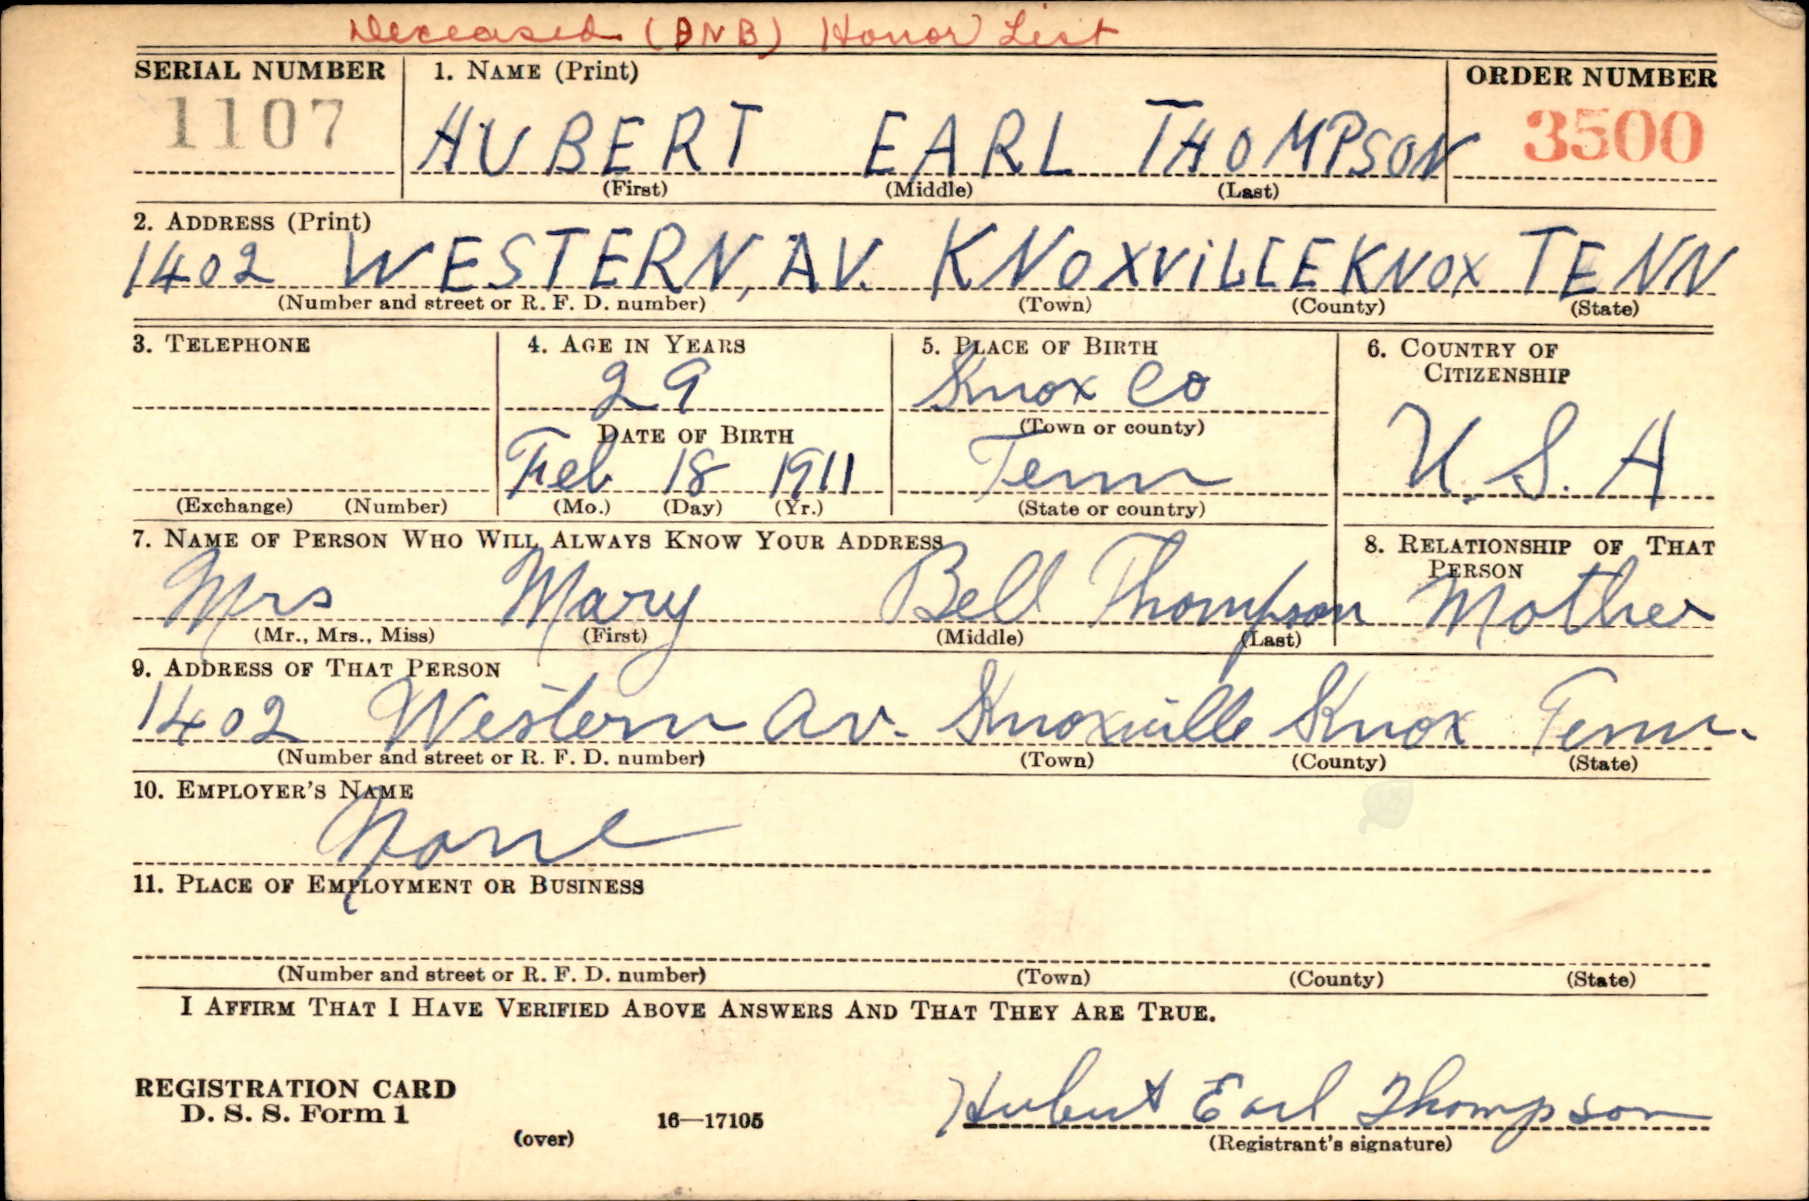 Deceased (DNB) Honor List
SERIAL NUMBER 1. NAME (Print) ORDER NUMBER
1107 HUBERT EARL THOMPSON 3500
(First) (Middle) (Last)
2. ADDRESS (Print)
1402 WESTERN, AV. KNOXViLLE KNOX TENN
(Number and street or R. F. D. number) (Town) (County) (State)
3. TELEPHONE 4. AGE IN YEARS 5. PLACE OF BIRTH 6. COUNTRY OF CITIZENSHIP
29 Knox Co
DATE OF BIRTH (Town or county)
Feb 18 1911 Tenn U.S.A
(Exchange) (Number) (Mo.) (Day) (Yr.) (State or country)
7. NAME OF PERSON WHO WILL ALWAYS KNOW YOUR ADDRESS 8. RELATIONSHIP OF THAT PERSON
Mrs Mary Bell Thompson Mother
(Mr., Mrs., Miss) (First) (Middle) (Last)
9. ADDRESS OF THAT PERSON
1402 Western Av. Knoxville Knox Tenn.
(Number and street or R. F. D. number) (Town) (County) (State)
10. EMPLOYER'S NAME
None
11. PLACE OF EMPLOYMENT OR BUSINESS
(Number and street or R. F. D. number) (Town) (County) (State)
I AFFIRM THAT I HAVE VERIFIED ABOVE ANSWERS AND THAT THEY ARE TRUE.
REGISTRATION CARD
D. S. S. Form 1 16—17105 Hubert Earl Thompson
(over) (Registrant's signature)